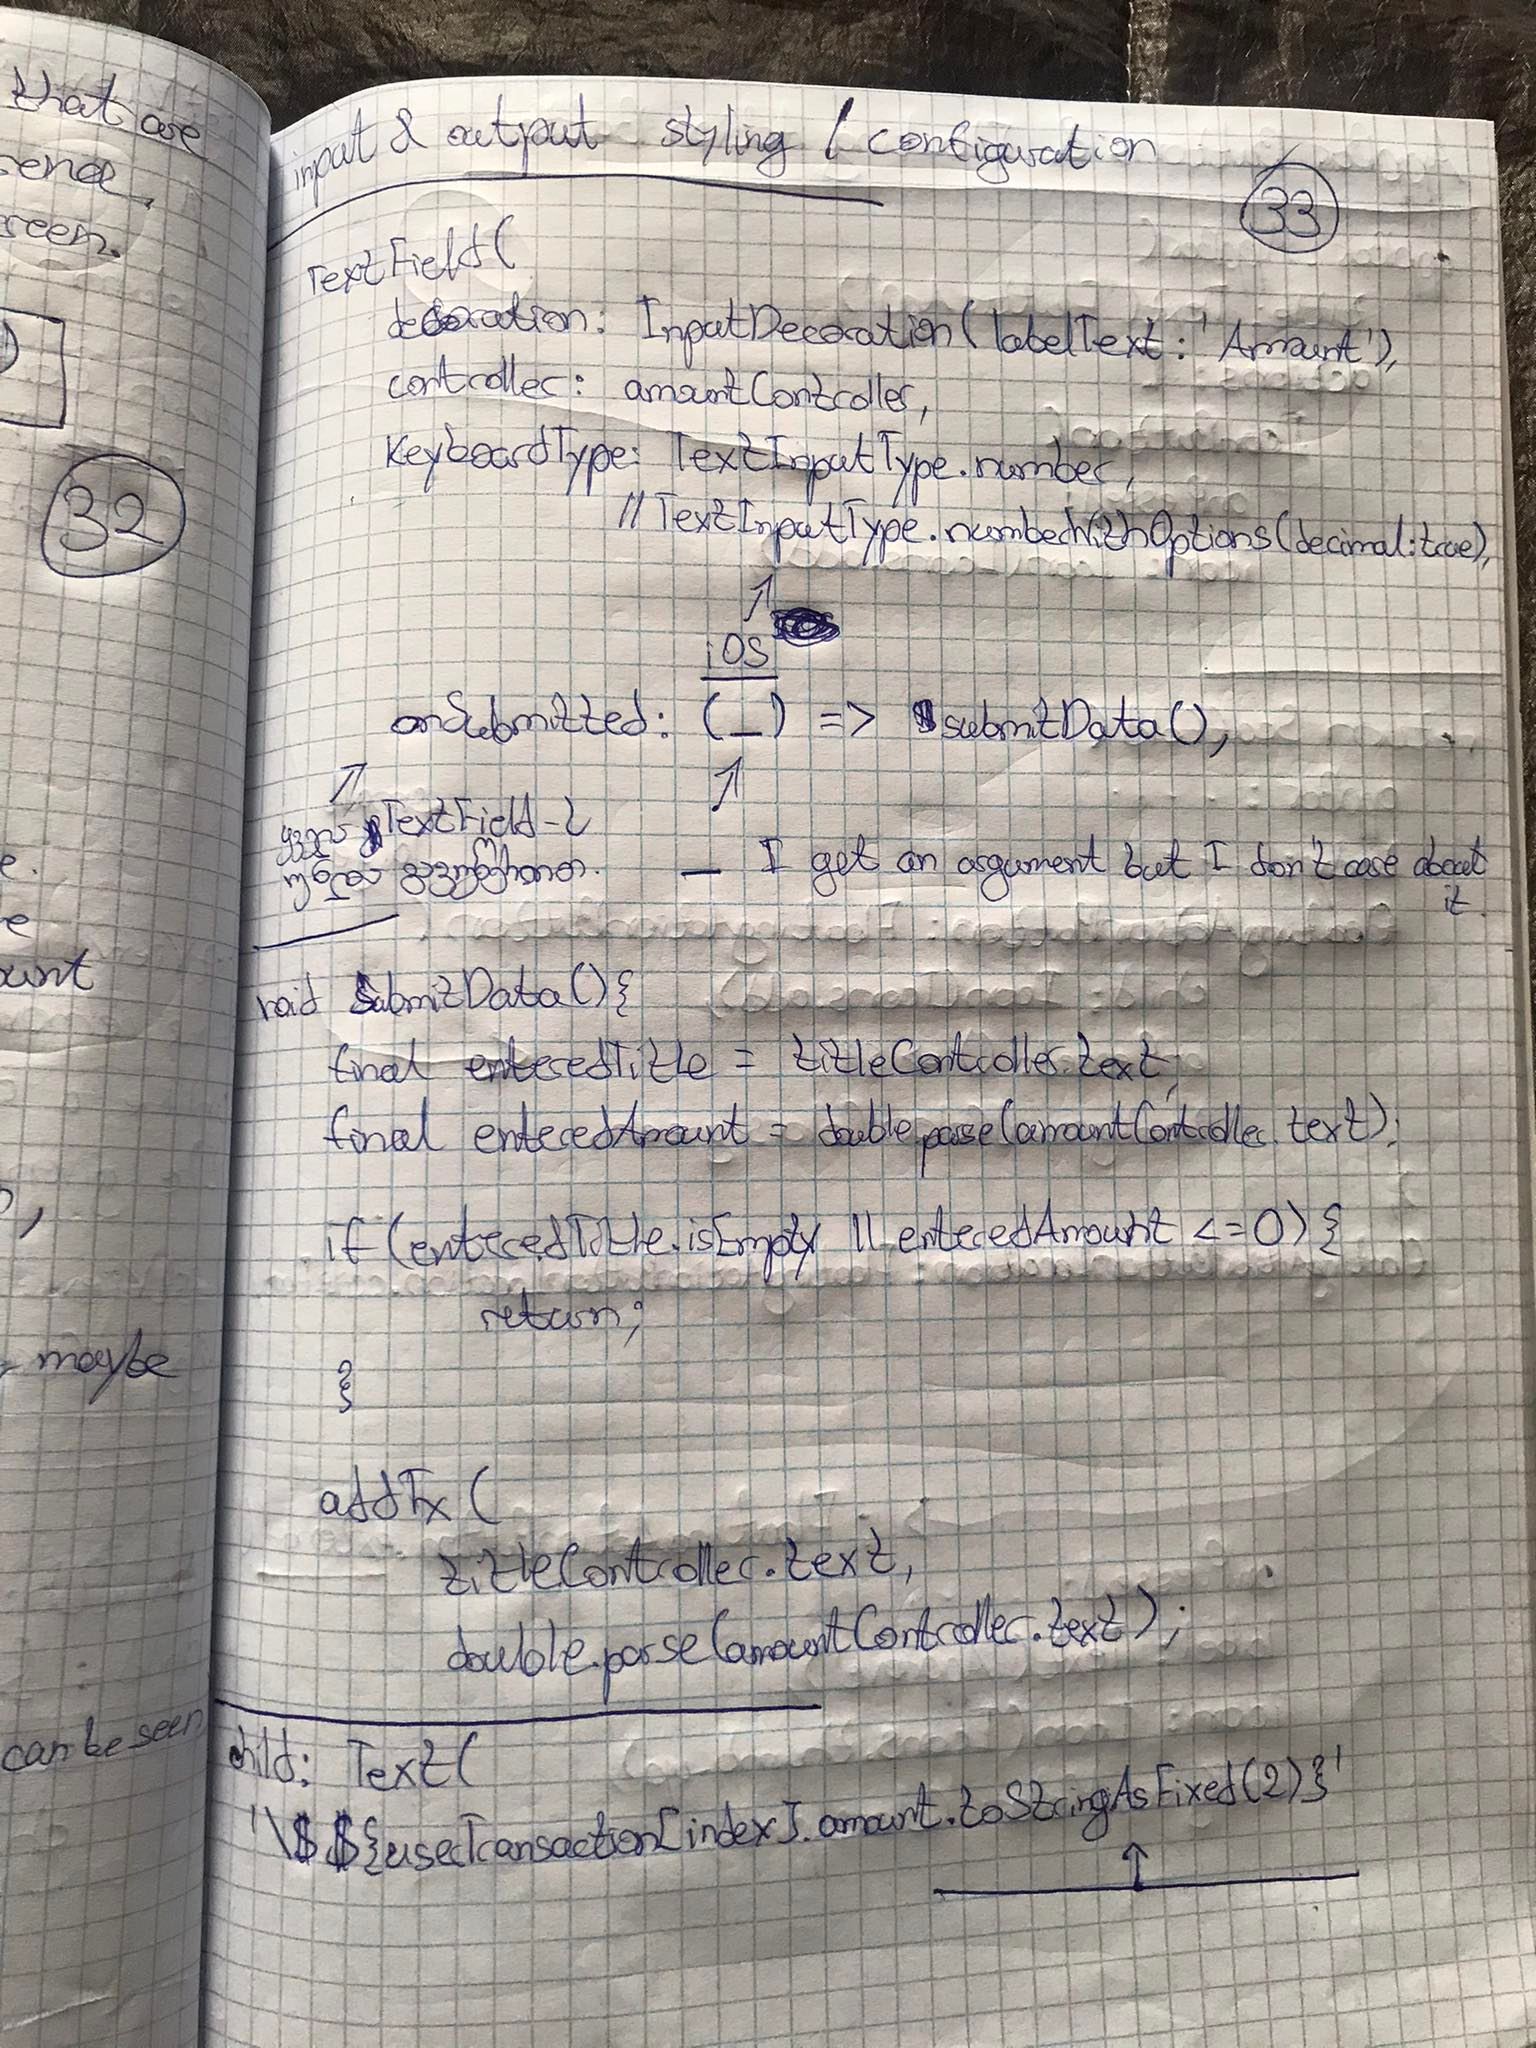 that are
reen.
32
e.
e
maybe
can be seen
input & output styling / configuration
33
TextField(
decoration: InputDecoration(labelText: 'Amount'),
controller: amountController,
KeyboardType: TextInputType.number,
//TextInputType.numberWithOptions(decimal:true),
iOS
onSubmitted: (_) => submitData(),
TextField-ს
— I get an argument but I don't care about
it.
void SubmitData(){
final enteredTitle = titleController.text;
final enteredAmount = double.parse(amountController.text);
if(enteredTitle.isEmpty || enteredAmount <=0){
return;
}
addTx(
titleController.text,
double.parse(amountController.text);
child: Text(
'\$ ${userTransaction[index].amount.toStringAsFixed(2)}'